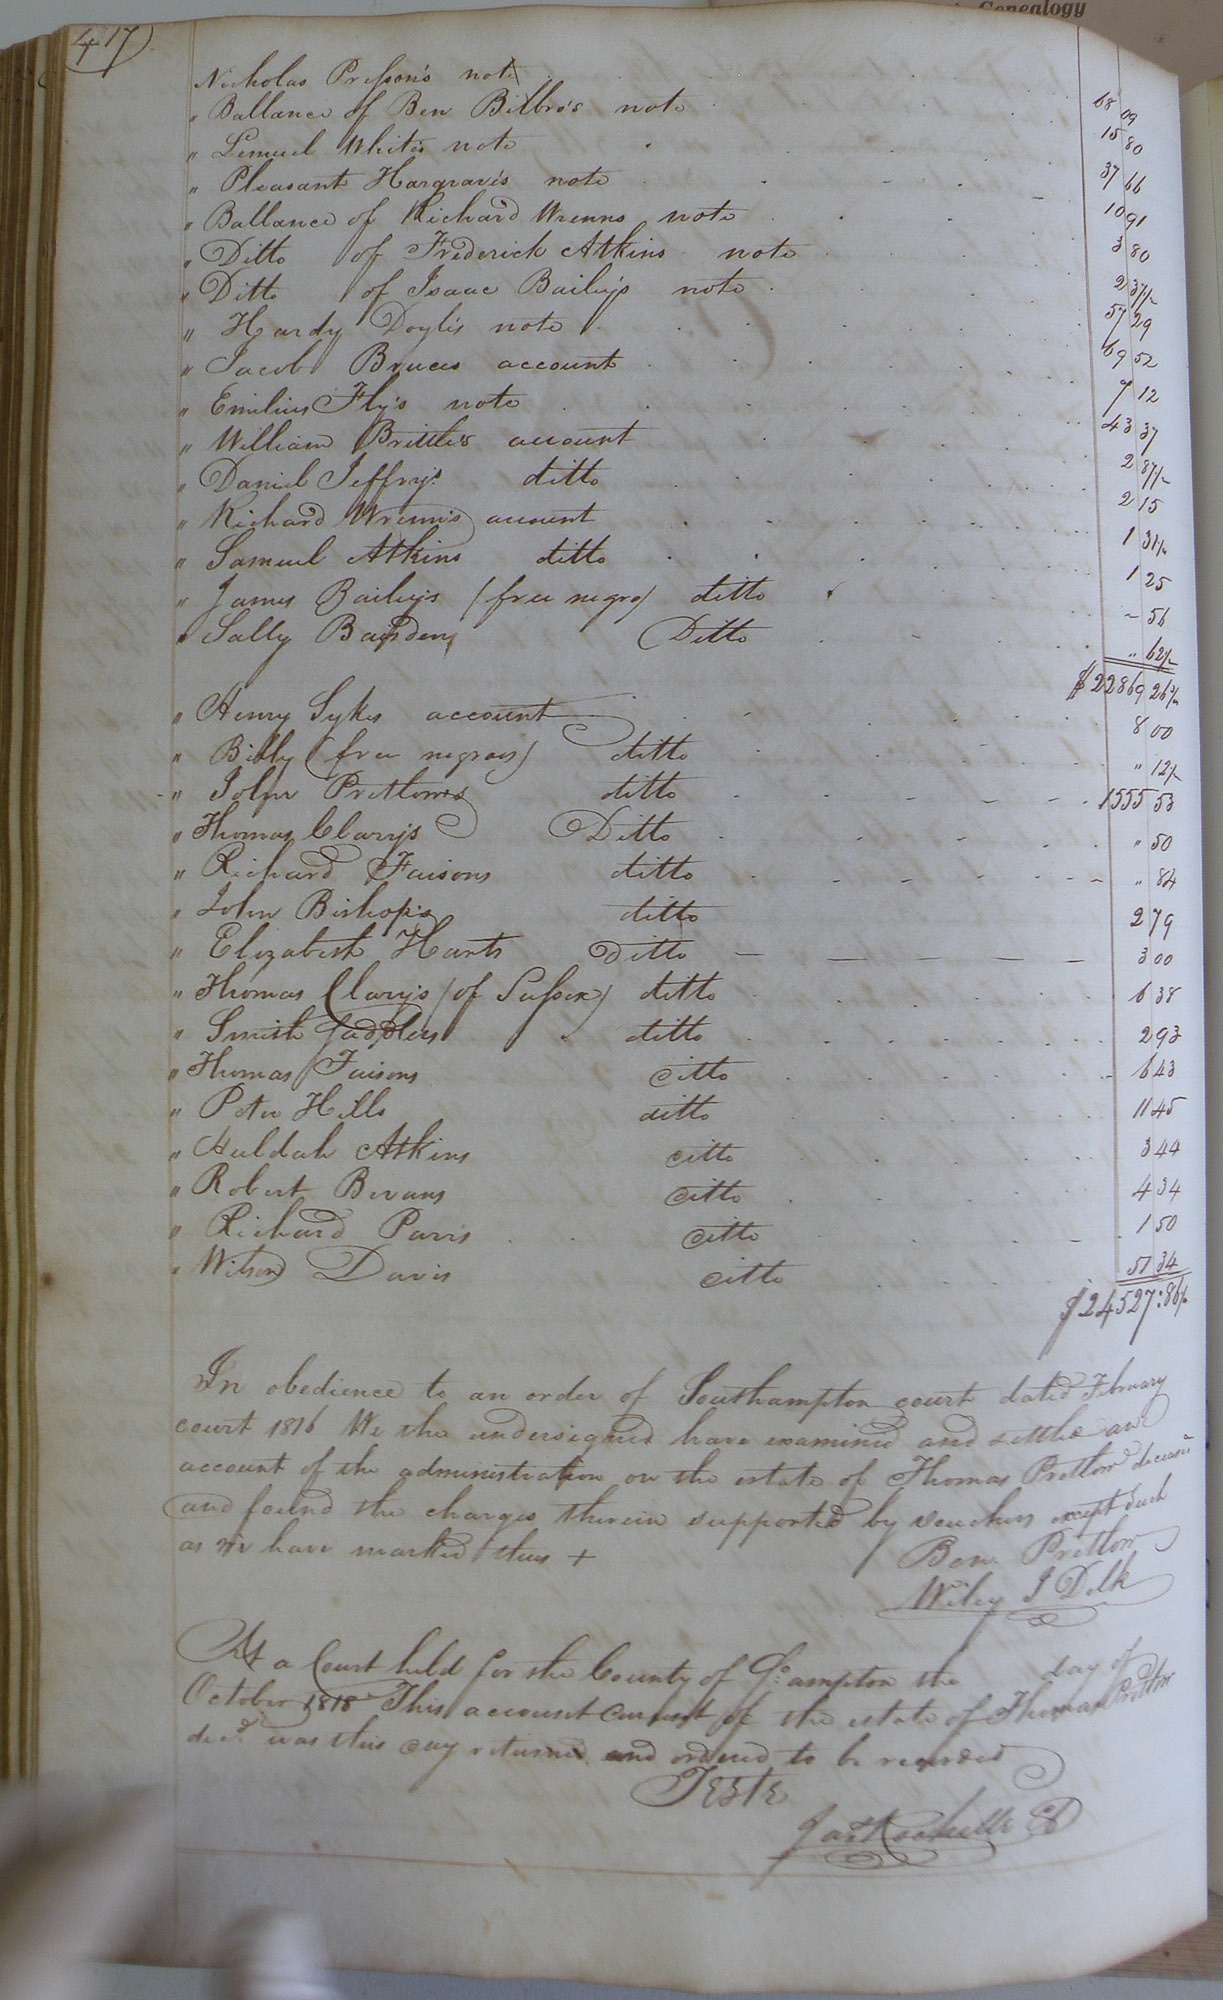 Genealogy
417
Nicholas Presson's note 68 09
" Ballance of Ben Bilbro's note 15 80
" Lemuel White's note 37 66
" Pleasant Hargrave's note 10 91
" Ballance of Richard Wrenns note 3 80
" Ditto of Frederick Atkins note 2 37½
" Ditto of Isaac Bailey's note 57 29
" Hardy Doyle's note 69 52
" Jacob Bruces account 7 12
" Emilius Fly's note 43 37
" William Brittle's account 2 87½
" Daniel Jeffry's ditto 2 15
" Richard Wrenn's account 1 31½
" Samuel Atkins ditto 1 25
" James Bailey's (free negro) ditto - 56
" Sally Ditto " 62½
$22869 26½
" Henry Sykes account 8 00
" Billy (free negroes) ditto " 12½
" John Pretlows ditto 1555 53
" Thomas Clary's Ditto " 50
" Richard Faisons ditto " 84
" John Bishop's ditto 2 79
" Elizabeth Harts Ditto 3 00
" Thomas Clary's (of Sussex) ditto 6 38
" Smith ditto 2 93
" Thomas Faisons ditto 6 43
" Peter Hills ditto 11 45
" Huldah Atkins ditto 3 44
" Robert Bevans ditto 4 34
" Richard Parr's ditto 1 50
" Wilson Davis ditto 51 34
$24527:86½
In obedience to an order of Southampton court dated February
court 1816 We the undersigned have examined and settle an
account of the administration on the estate of Thomas Pretlow deceased
and found the charges therein supported by vouchers except such
as we have marked thus +
Ben. Pretlow
Wiley J Delk
At a Court held for the County of So:ampton the day of
October 1818 This account current of the estate of Thomas Pretlow
decd. was this day returned and ordered to be recorded
Teste
Jas Rochelle C